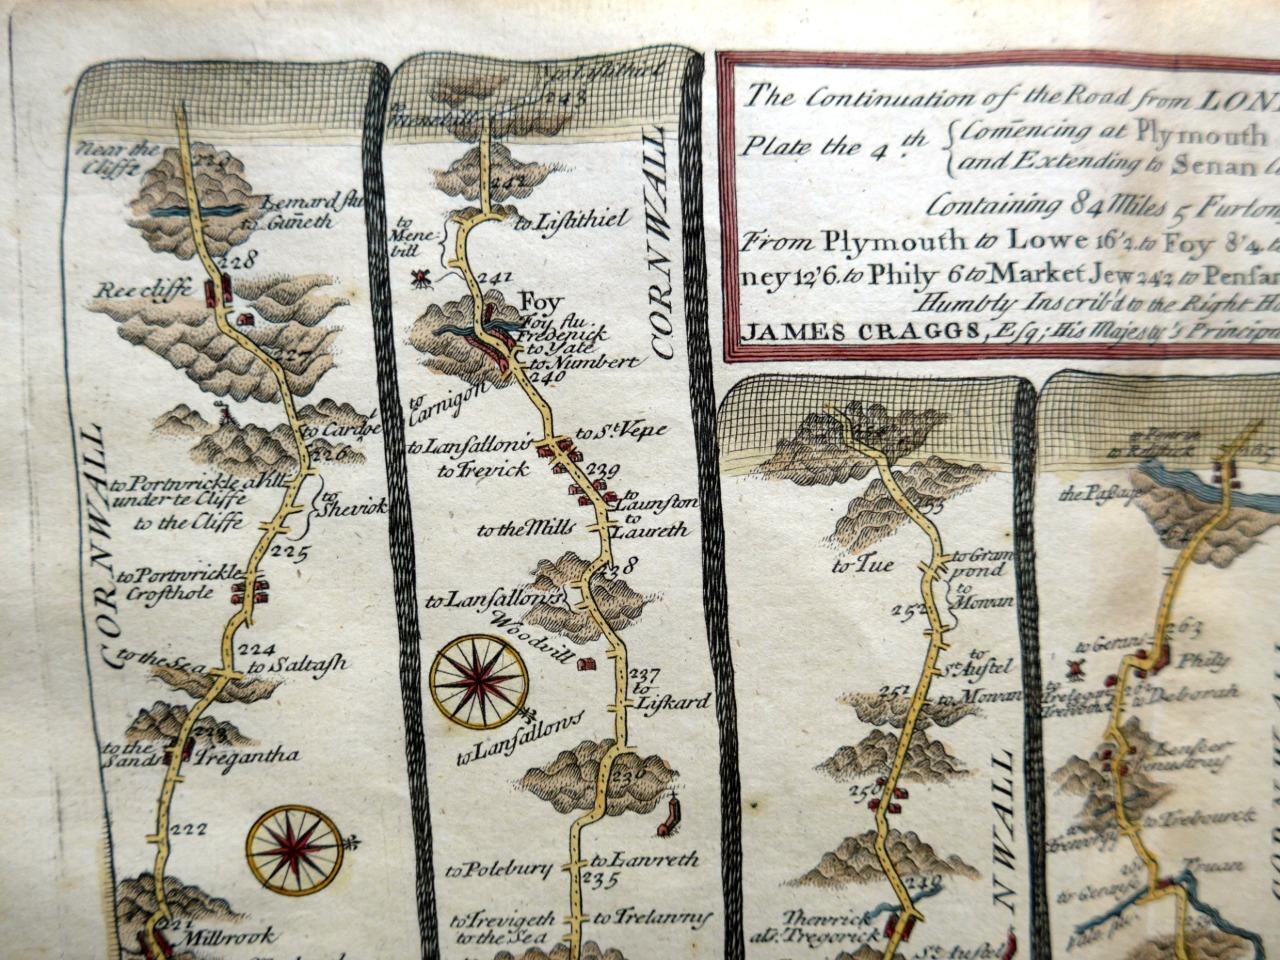 The Continuation of the Road from LON
Plate the 4.th
Com̄encing at Plymouth
and Extending to Senan
Containing 84 Miles 5 Furlon
From Plymouth to Lowe 16'2. to Foy 8'4. to
ney 12'6. to Phily 6 to Market Jew 24 2 to Pensan
Humbly Inscrib'd to the Right H
JAMES CRAGGS, Esq; His Majesty's Princip
CORNWALL
Near the
Cliffe
229
Lemard flu
to Gun̄eth
228
Ree cliffe
227
to Cardoe
226
to Portwrickle a Vill
under te Cliffe
to the Cliffe
to
Sheviok
225
to Portwrickle
Crofthole
224
to the Sea
to Saltash
223
to the
Sands
Tregantha
222
221
Millbrook
CORNWALL
to Listithiel
243
to
Menebill
242
to Listithiel
to
Mene
bill
241
Foy
Foy flu.
to Yate
to Numbert
240
to
Carnigon
to Lansallonis
to St. Vepe
to Trevick
239
to
Launston
to the Mills
to
Laureth
238
to Lansallows
Woodvill
237
to
Liskard
to Lansallows
236
to Polebury
to Lanreth
235
to Trevigeth
to the Sea
to Trelawny
NWALL
254
253
to Tue
to Gram
pond
252
to
Mowan
to
St. Austel
251
to Mowan
250
249
Thenrick
als. Tregorick
St. Austel
the Passage
263
to Gerans
Phily
to Deborah
to Trebourck
Truan